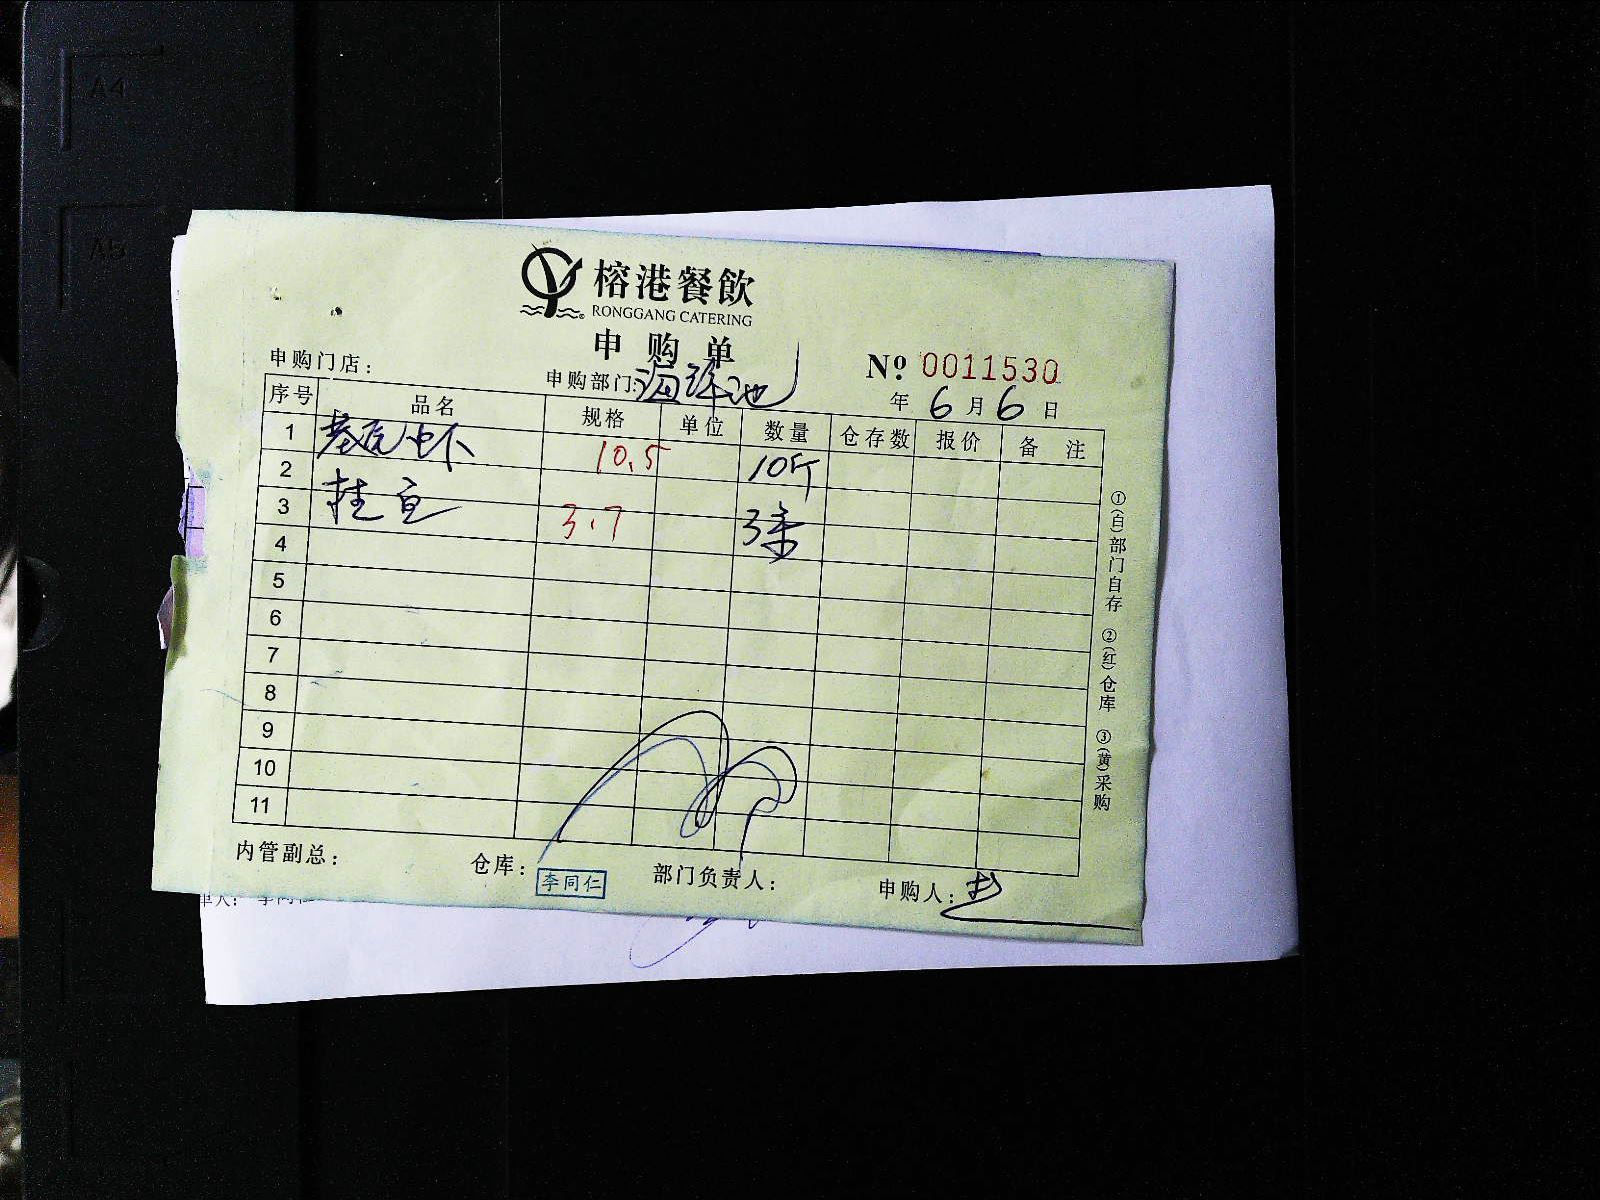 A4
A5
榕港餐飲
RONGGANG CATERING
申购单
申购门店：
申购部门：海鲜池
№ 0011530
年 6 月 6 日
序号 品名 规格 单位 数量 仓存数 报价 备注
1 基尾虾 10.5 10斤
2 桂鱼 3.7 3条
3
4
5
6
7
8
9
10
11
①(白)部门自存 ②(红)仓库 ③(黄)采购
内管副总： 仓库： 李同仁 部门负责人： 申购人：
单人： 李同仁